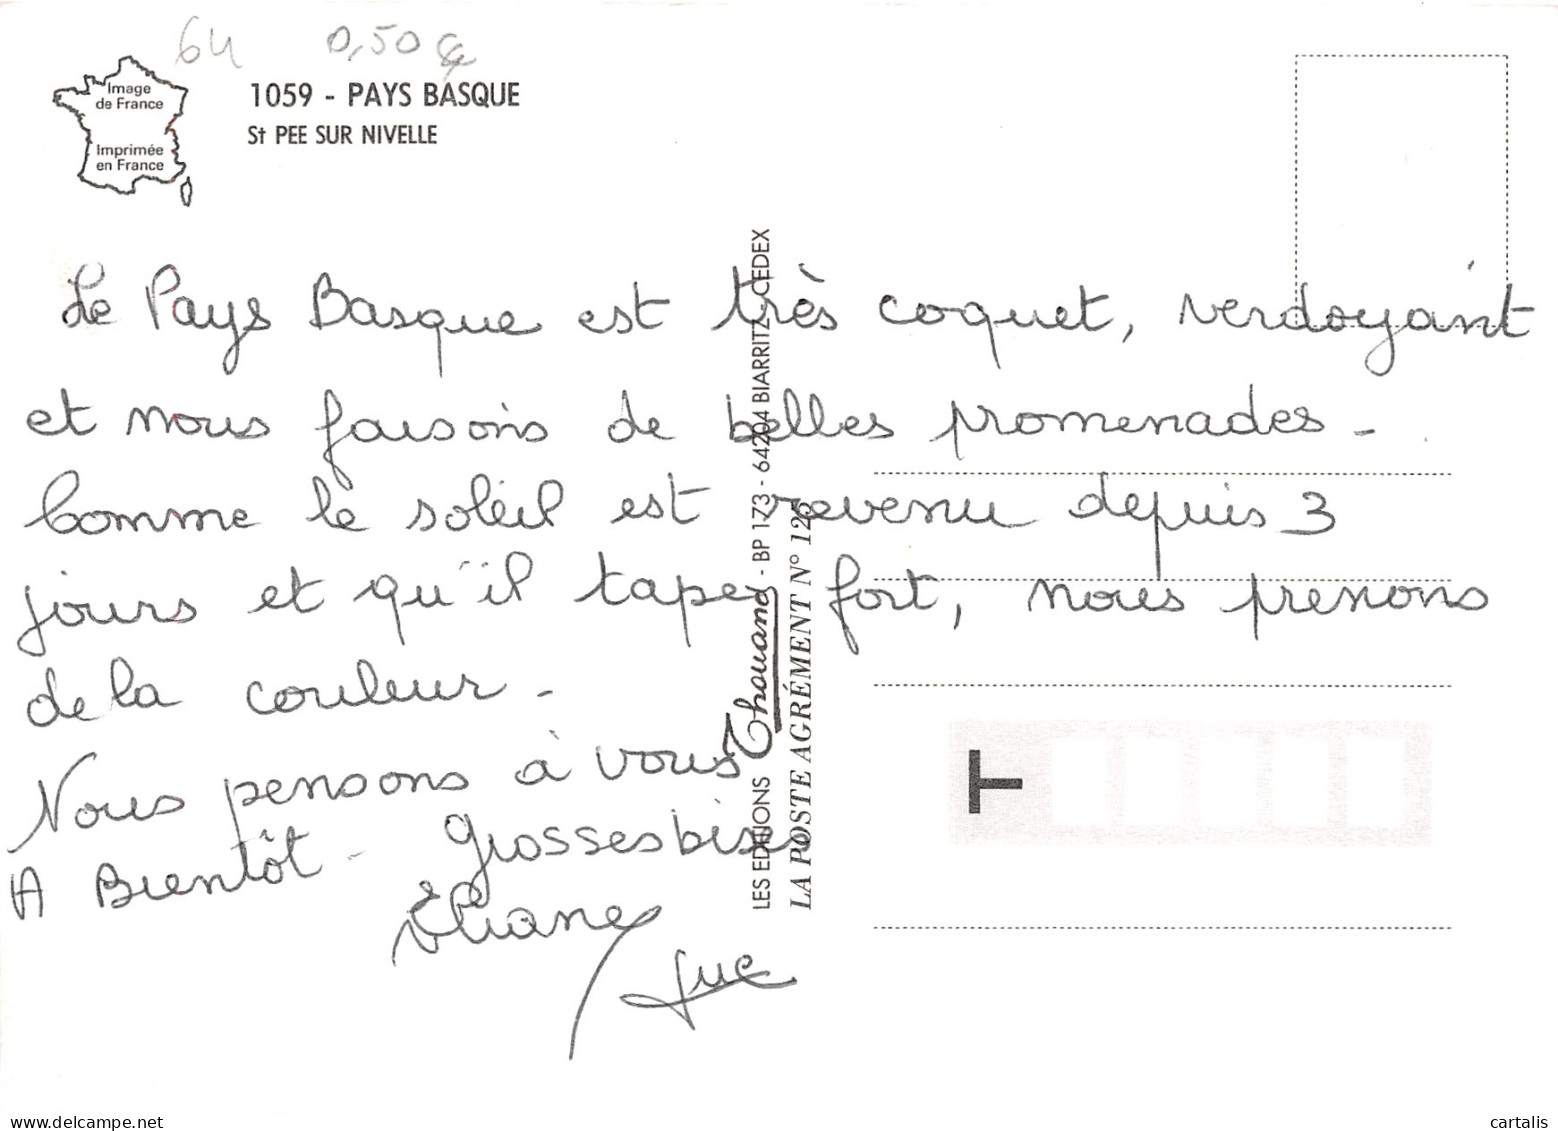 64 0,50 €
Image
de France
Imprimée
en France
1059 - PAYS BASQUE
St PEE SUR NIVELLE
Le Pays Basque est très coquet, verdoyant
et nous faisons de belles promenades -
Comme le soleil est revenu depuis 3
jours et qu'il tape fort, nous prenons
de la couleur -
Nous pensons à vous
A Bientôt - Grosses bises
Eliane
Luc
LES EDITIONS Thouand - BP 173 - 64204 BIARRITZ - CEDEX
LA POSTE AGRÉMENT N° 126
T
cartalis